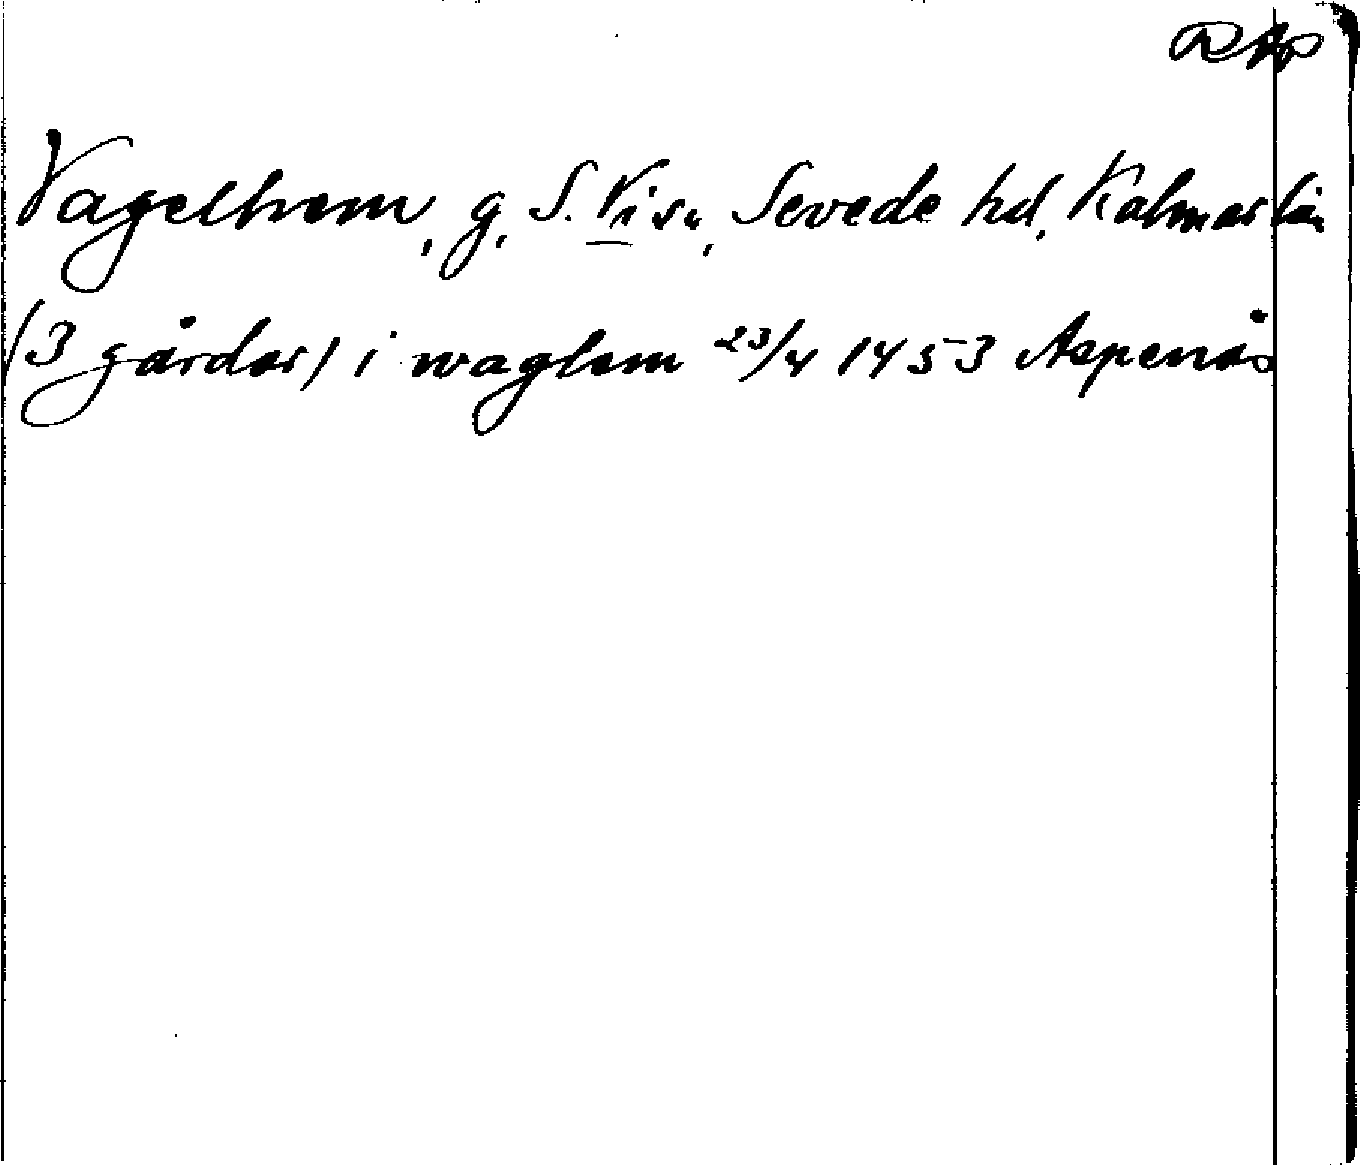 RAp
Vagelhem, g, S. Vi sn, Sevede hd, Kalmar län
(3 gårdar) i waglem 23/4 1453 Aspenäs